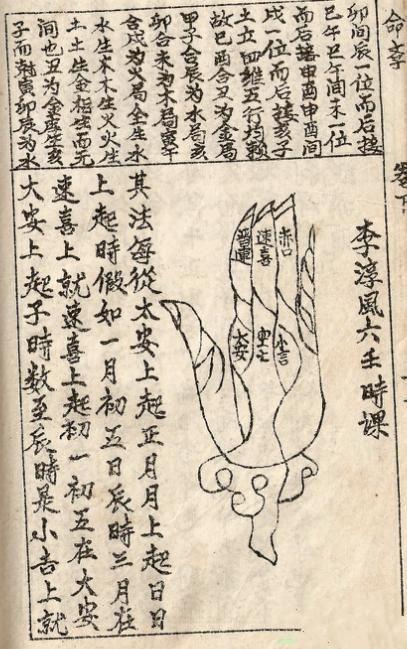 命學
卷下
卯間辰一位而后接
巳午巳午間未一位
而后接申酉申酉間
戌一位而后接亥子
土立四維五行均
故巳酉合丑为金局
甲子合辰为水局亥
卯合未为木局寅午
合戌为火局金生水
水生木木生火火生
土土生金相生而无
間也丑为金
子而 寅卯辰为水
李淳風六壬時課
赤口
速喜
留連
小吉
空亡
大安
其法每從大安上起正月月上起日日
上起時假如一月初五日辰時三月在
速喜上就速喜上起初一初五在大安
大安上起子時数至辰時是小吉上就